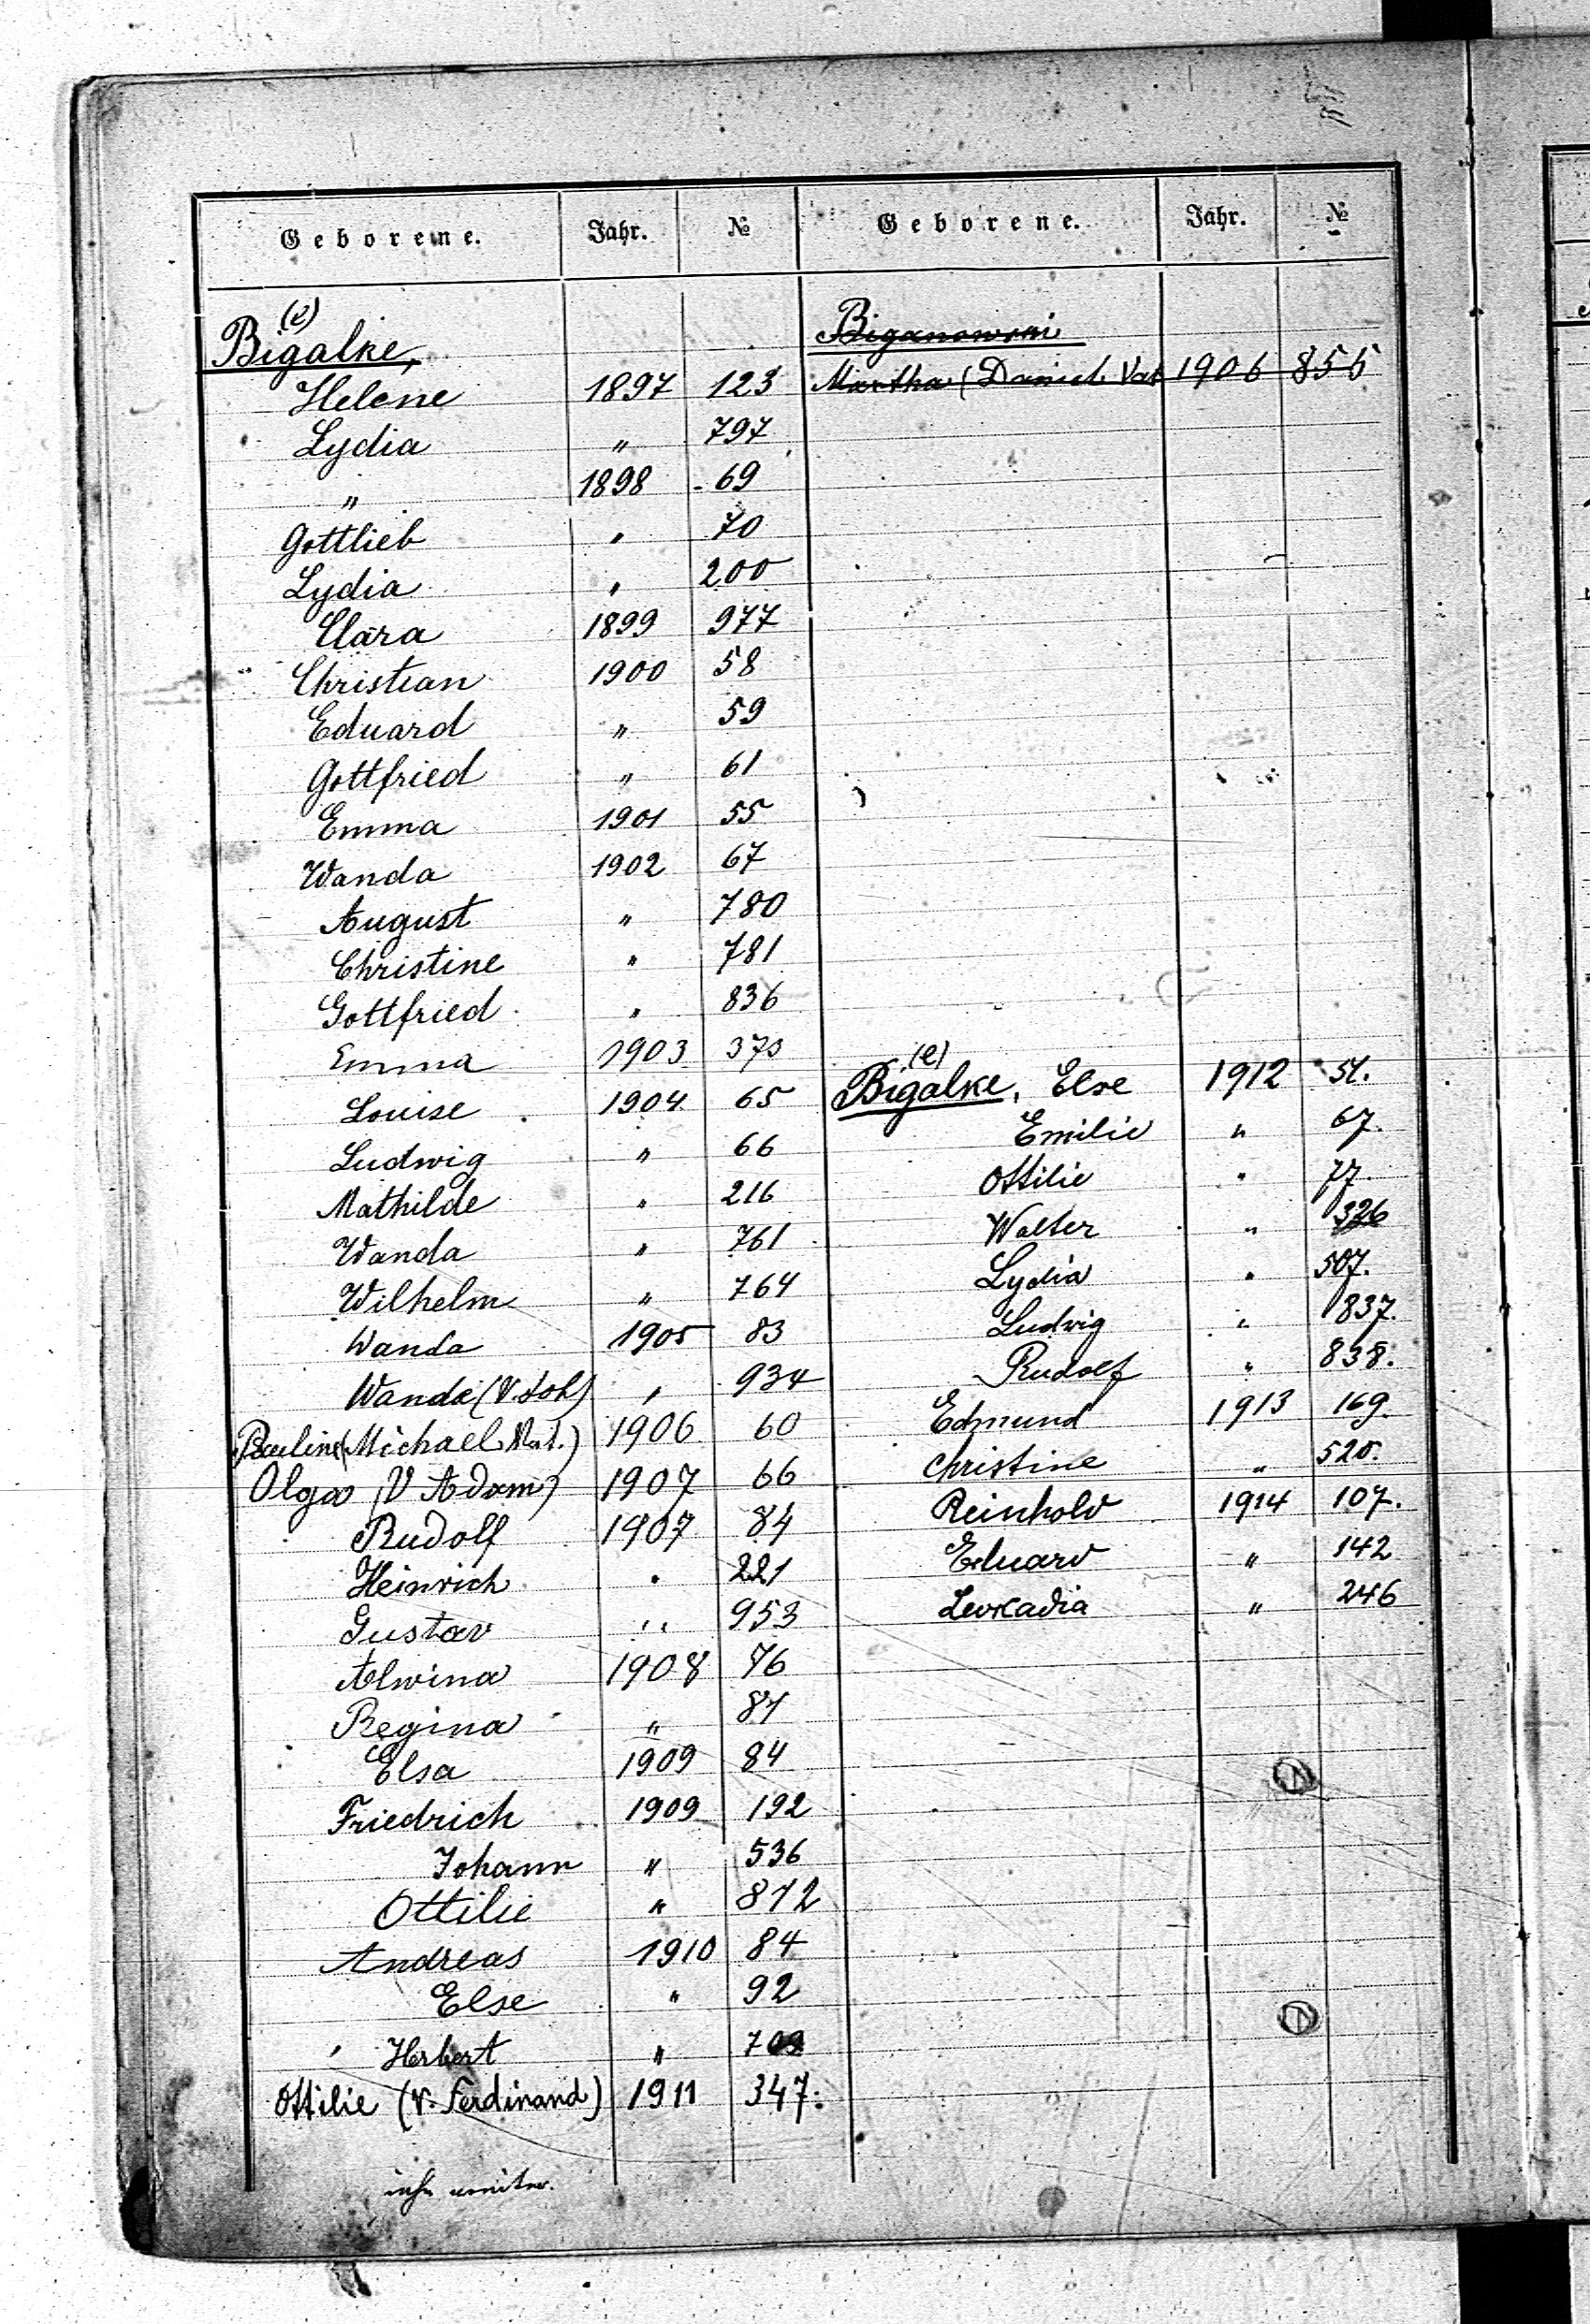 Geborene. Jahr. №
(e)
Bigalke,
Helene 1897 123
Lydia " 797
" 1898 69
Gottlieb " 70
Lydia " 200
Clara 1899 977
Christian 1900 58
Eduard " 59
Gottfried " 61
Emma 1901 55
Wanda 1902 67
August " 780
Christine " 781
Gottfried " 836
Emma 1903
Louise 1904 65
Ludwig " 66
Mathilde " 216
Wanda " 761
Wilhelm " 764
Wanda 1905 83
Wanda (V. Joh) " 934
Pauline (Michael Vat.) 1906 60
Olga (V Adam) 1907 66
Rudolf 1907 84
Heinrich " 221
Gustav " 953
Alwina 1908 76
Regina "
Elsa 1909 84
Friedrich 1909 192
Johann " 536
Ottilie " 872
Andreas 1910 84
Else " 92
Herbert "
Ottilie (V. Ferdinand) 1911 347.
Geborene. Jahr. №
Biganowski
Martha (Daniel Vat 1906 855
(e)
Bigalke, Else 1912 51.
Emilie " 67.
Ottilie " 77.
Walter " 326
Lydia " 507.
Ludwig " 837.
Rudolf " 838.
Edmund 1913 169.
Christine " 520.
Reinhold 1914 107.
Eduard " 142
Leokadia " 246